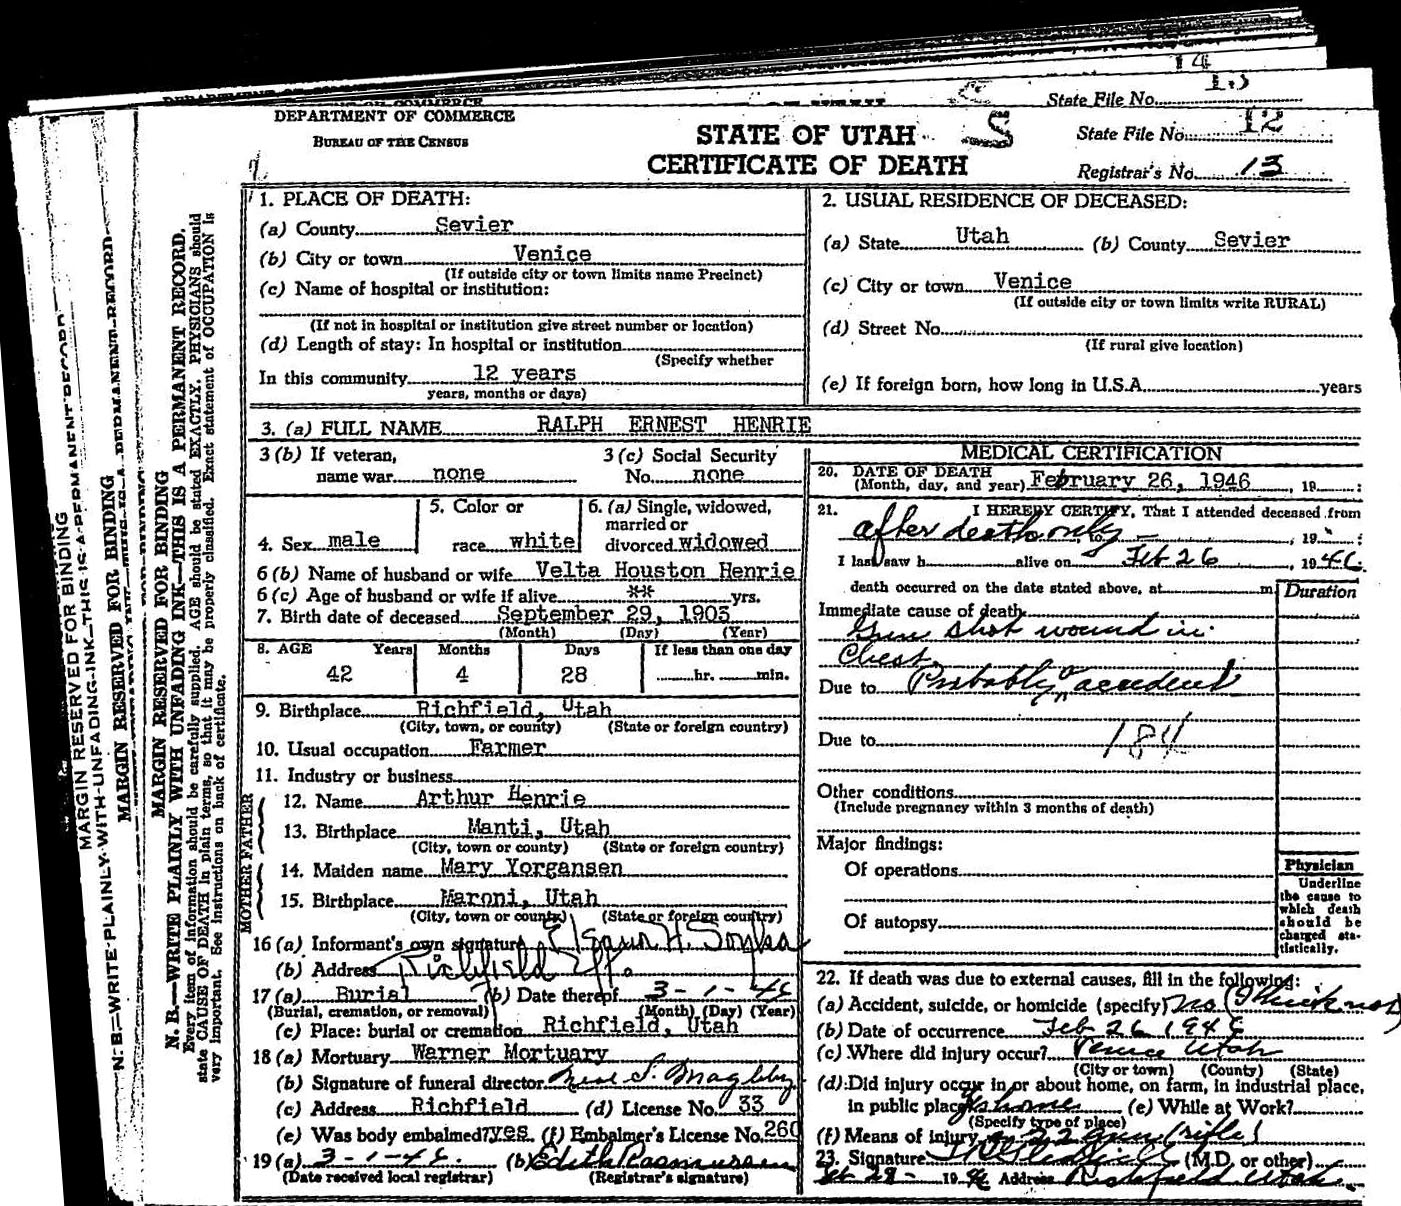 14
13
State File No.
DEPARTMENT OF COMMERCE
BUREAU OF THE CENSUS
STATE OF UTAH
CERTIFICATE OF DEATH
S
State File No. 12
Registrar's No. 13
1. PLACE OF DEATH:
(a) County Sevier
(b) City or town Venice
(If outside city or town limits name Precinct)
(c) Name of hospital or institution:
(If not in hospital or institution give street number or location)
(d) Length of stay: In hospital or institution
(Specify whether
In this community 12 years
years, months or days)
2. USUAL RESIDENCE OF DECEASED:
(a) State Utah (b) County Sevier
(c) City or town Venice
(If outside city or town limits write RURAL)
(d) Street No.
(If rural give location)
(e) If foreign born, how long in U.S.A. years
3. (a) FULL NAME RALPH ERNEST HENRIE
3 (b) If veteran, name war none
3 (c) Social Security No. none
4. Sex male
5. Color or race white
6. (a) Single, widowed, married or divorced widowed
6 (b) Name of husband or wife Velta Houston Henrie
6 (c) Age of husband or wife if alive ** yrs.
7. Birth date of deceased September 29, 1903
(Month) (Day) (Year)
8. AGE Years Months Days If less than one day
42 4 28 hr. min.
9. Birthplace Richfield, Utah
(City, town, or county) (State or foreign country)
10. Usual occupation Farmer
11. Industry or business
FATHER
12. Name Arthur Henrie
13. Birthplace Manti, Utah
(City, town or county) (State or foreign country)
MOTHER
14. Maiden name Mary Yorgansen
15. Birthplace Maroni, Utah
(City, town or county) (State or foreign country)
16 (a) Informant's own signature
(b) Address Richfield
17 (a) Burial (b) Date thereof 3-1-46
(Burial, cremation, or removal) (Month) (Day) (Year)
(c) Place: burial or cremation Richfield, Utah
18 (a) Mortuary Warner Mortuary
(b) Signature of funeral director Neal S. Magleby
(c) Address Richfield (d) License No. 33
(e) Was body embalmed? yes (f) Embalmer's License No. 260
19 (a) 3-1-46. (b) Edith Rasmussen
(Date received local registrar) (Registrar's signature)
MEDICAL CERTIFICATION
20. DATE OF DEATH
(Month, day, and year) February 26, 1946, 19
21. I HEREBY CERTIFY, That I attended deceased from
after death only - , 19
I last saw h alive on Feb 26 1946
death occurred on the date stated above, at m
Duration
Immediate cause of death
Gun shot wound in
Chest
Due to Probably accident
Due to 184
Other conditions
(Include pregnancy within 3 months of death)
Major findings:
Of operations
Of autopsy
Physician
Underline
the cause to
which death
should be
charged sta-
tistically.
22. If death was due to external causes, fill in the following:
(a) Accident, suicide, or homicide (specify) no (I think not)
(b) Date of occurrence Feb 26 1946
(c) Where did injury occur? Venice Utah
(City or town) (County) (State)
(d) Did injury occur in or about home, on farm, in industrial place,
in public place? home (e) While at Work?
(Specify type of place)
(f) Means of injury 22 gun (rifle)
23. Signature (M.D. or other)
Feb 28 - 1946 Address Richfield Utah
MARGIN RESERVED FOR BINDING
N. B.—WRITE PLAINLY WITH UNFADING INK—THIS IS A PERMANENT RECORD.
Every item of information should be carefully supplied. AGE should be stated EXACTLY. PHYSICIANS should
state CAUSE OF DEATH in plain terms, so that it may be properly classified. Exact statement of OCCUPATION is
very important. See instructions on back of certificate.
MARGIN RESERVED FOR BINDING
MARGIN RESERVED FOR BINDING
N. B.—WRITE PLAINLY WITH UNFADING INK—THIS IS A PERMANENT RECORD